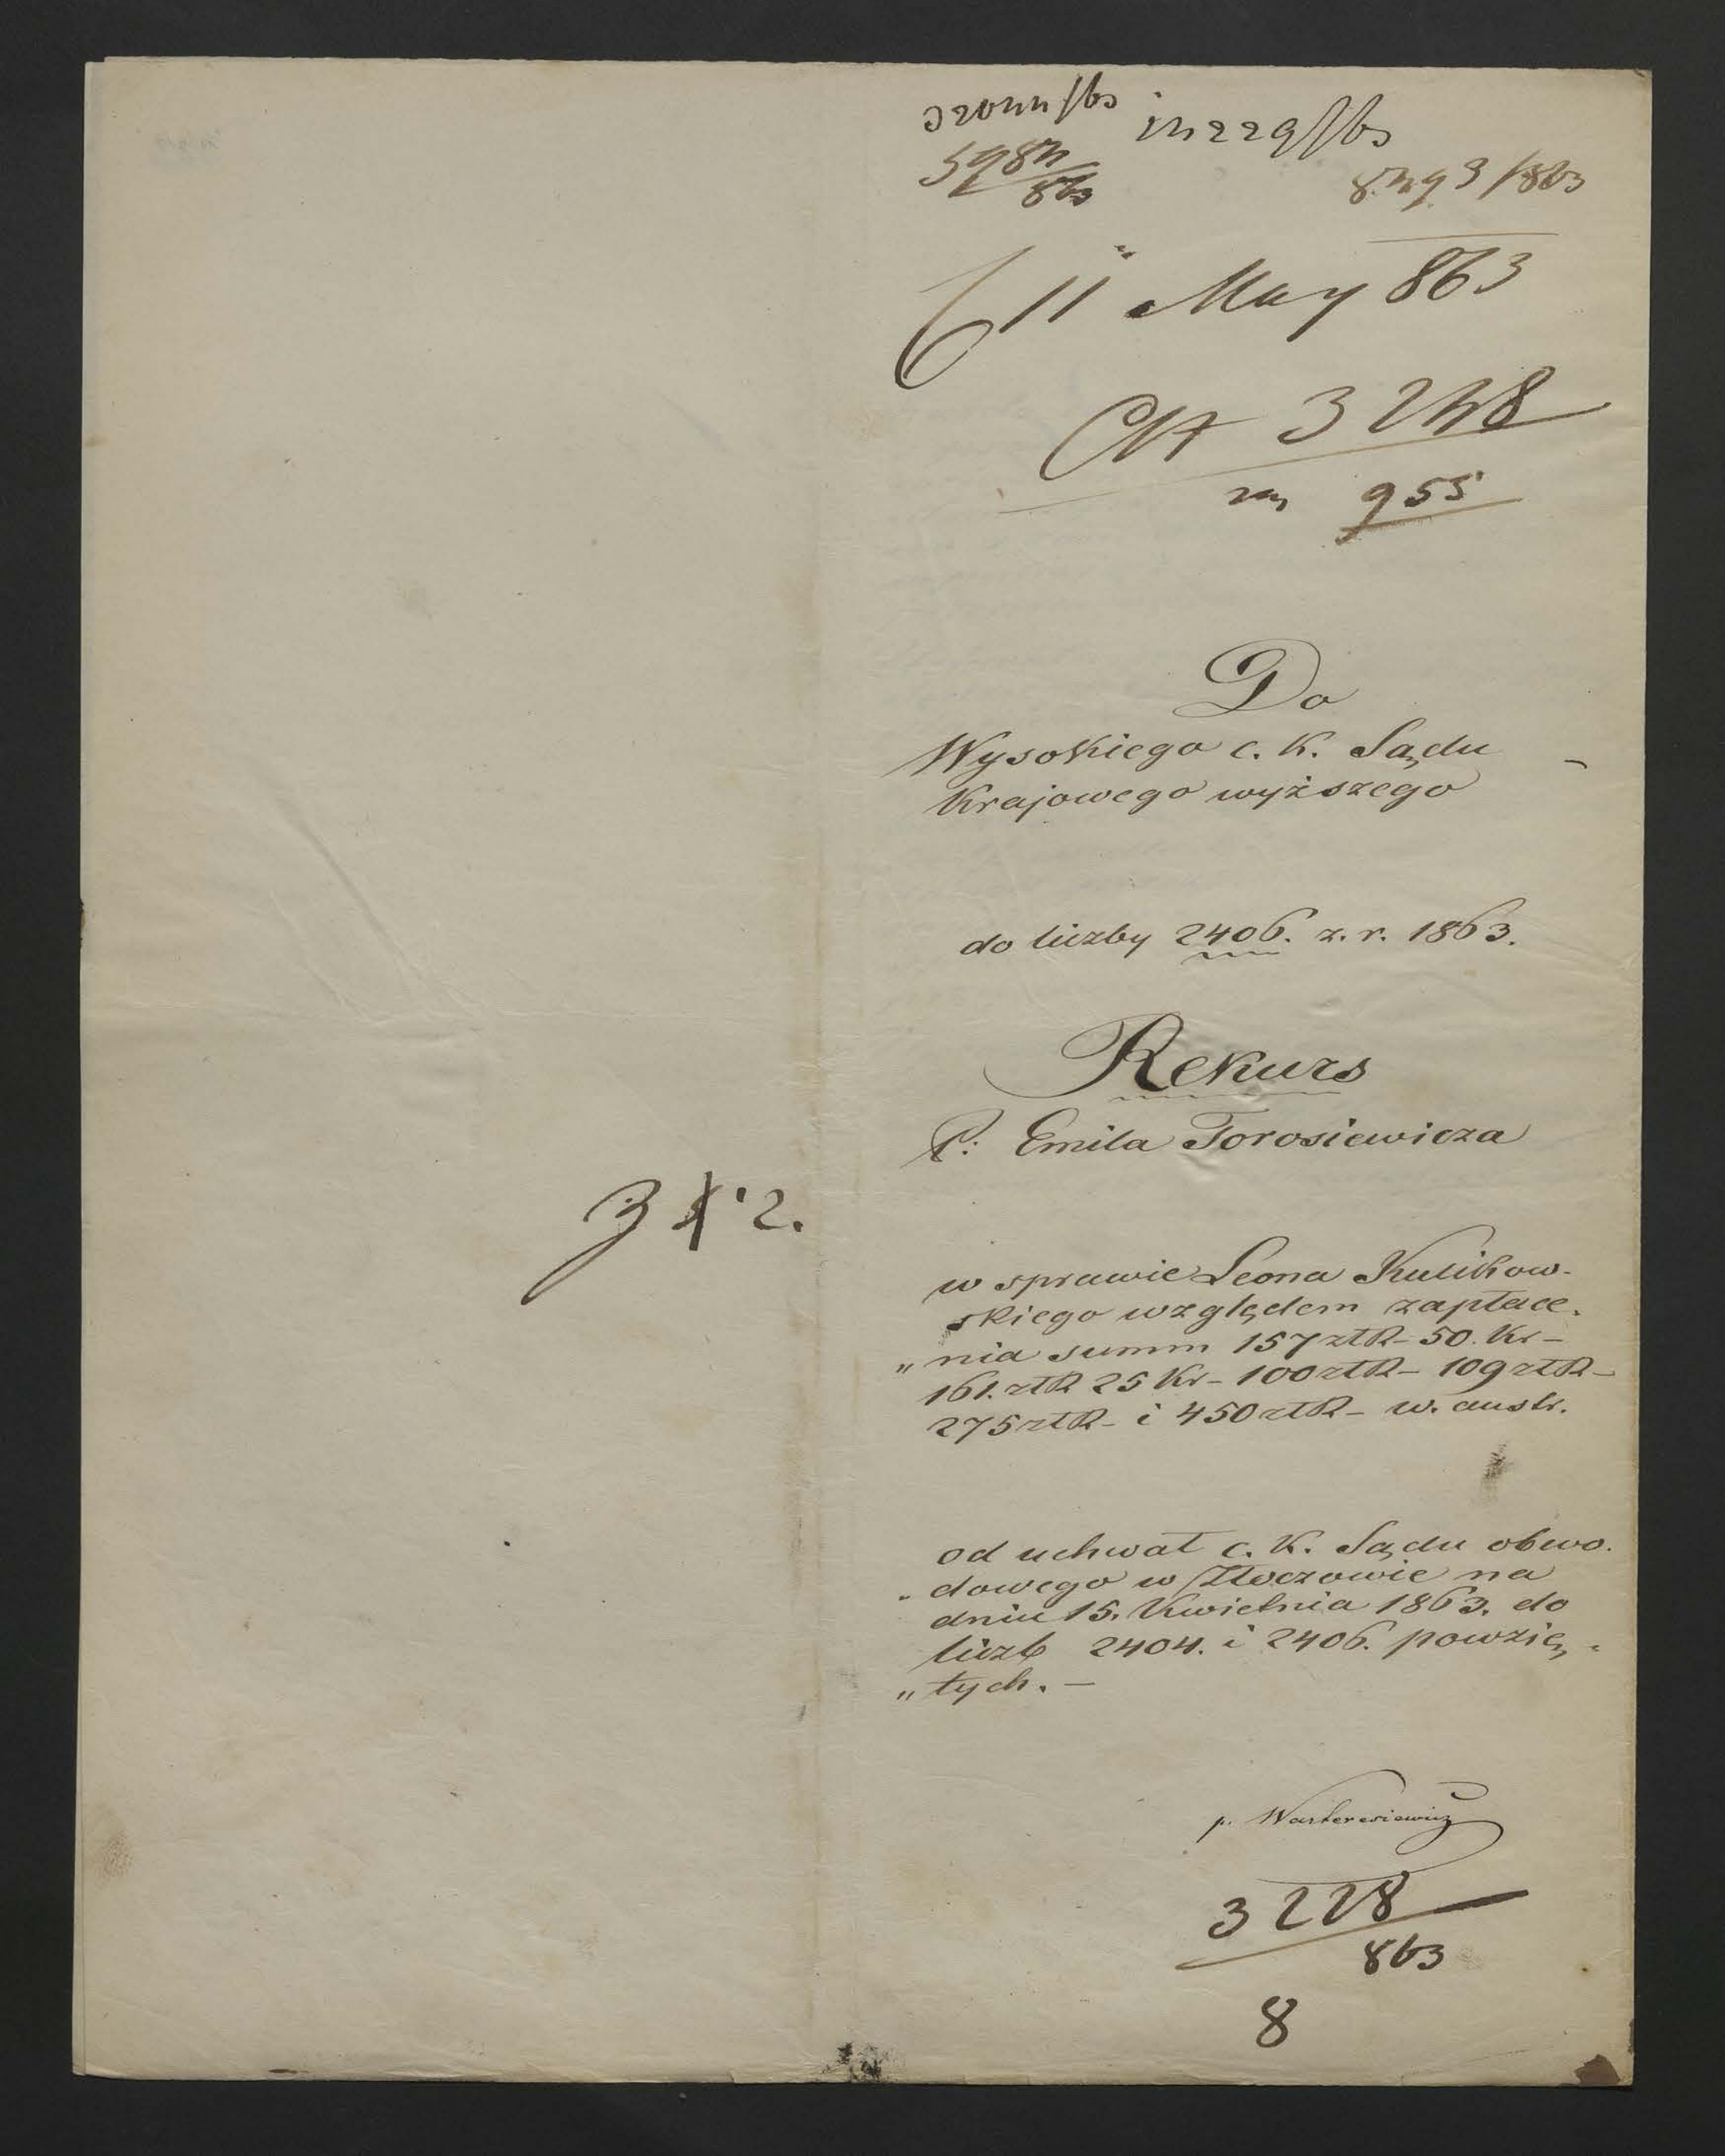 11 May 863
3248
955
Do
Wysokiego c. K. Sądu
Krajowego wyższego
do liczby 2406. z. r. 1863.
Rekurs
P. Emila Torosiewicza
3 2.
w sprawie Leona Kulikow-
skiego względem zapłace-
„nia summ 157 złR – 50. Kr –
161. złR 25 Kr – 100 złR – 109 złR –
275 złR – i 450 złR – w. austr.
od uchwał c. K. Sądu obwo-
dowego w Złoczowie na
dniu 15. Kwietnia 1863. do
liczb 2404. i 2406. powzię-
„tych. –
p. Warteresiewicz
3228
863
8